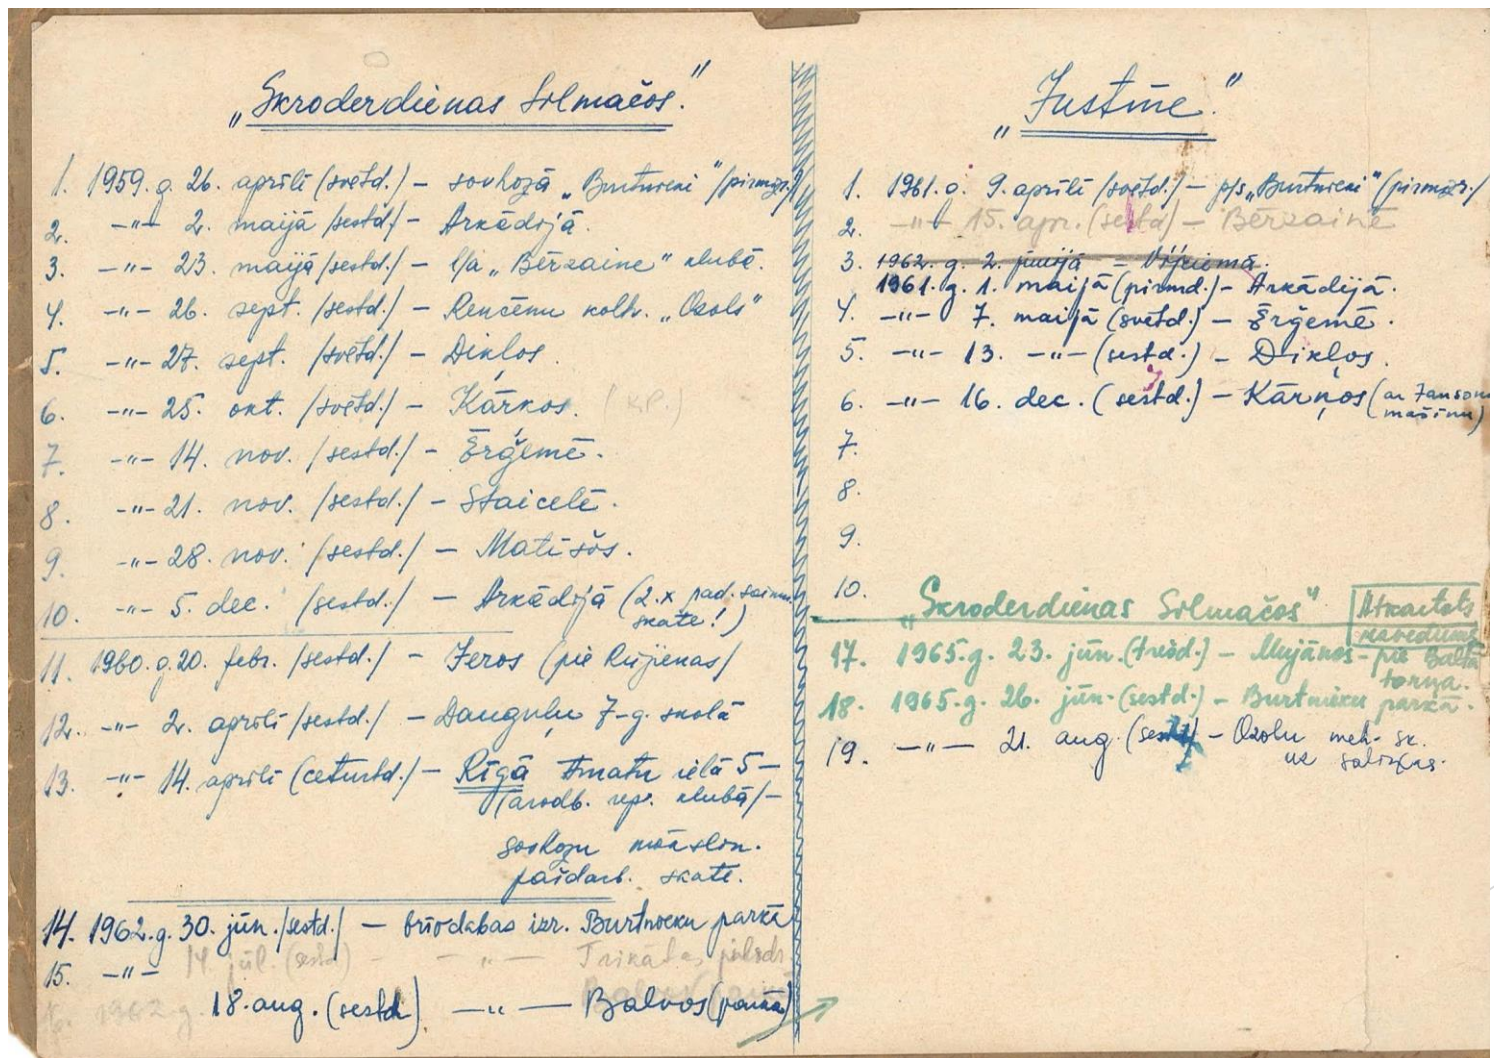 „Skroderdienas Silmačos.”
1. 1959. g. 26. aprīlī (svētd.) – sovhozā „Burtnieki” /pirmizr./
2. –"– 2. maijā /sestd./ – Arkādijā.
3. –"– 23. maijā /sestd./ – l/a „Bērzaine” klubā.
4. –"– 26. sept. /sestd./ – Rencēnu kolh. „Ozols”
5. –"– 27. sept. /svētd./ – Dikļos.
6. –"– 25. okt. /svētd./ – Kārķos. (K.P.)
7. –"– 14. nov. /sestd./ – Ērģemē.
8. –"– 21. nov. /sestd./ – Staicelē.
9. –"– 28. nov. /sestd./ – Matīšos.
10. –"– 5. dec. /sestd./ – Arkādijā (2.x pad. saimn.
skate!)
11. 1960. g. 20. febr. /sestd./ – Jeros (pie Rūjienas/
12. –"– 2. aprīlī /sestd./ – Dauguļu 7-g. skolā
13. –"– 14. aprīlī (ceturtd.) – Rīgā Amatu ielā 5 –
/arodb. rep. klubā/ –
sovhozu mākslin.
pašdarb. skate.
14. 1962. g. 30. jūn. /sestd./ – brīvdabas izr. Burtnieku parkā
15. –"– 14. jūl. (sestd) – –"– Trikātas pilsdr.
16. 1962 g. 18. aug. (sestd) –"– Balvos (parkā)
„Justīne.”
1. 1961. g. 9. aprīlī /svētd./ – p/s „Burtnieki” (pirmizr./
2. –"– 15. apr. (sestd) – Bērzainē
3. 1962. g. 2. jūnijā –
1961. g. 1. maijā (pirmd.) – Arkādijā.
4. –"– 7. maijā (svētd.) – Ērģemē.
5. –"– 13. –"– (sestd.) – Dikļos.
6. –"– 16. dec. (sestd.) – Kārķos (ar Jansona
mašīnu)
7.
8.
9.
10.
„Skroderdienas Silmačos” Atkārtots
iestudējums
17. 1965. g. 23. jūn. (trešd.) – Mujānos – pie Baltā
torņa.
18. 1965. g. 26. jūn. (sestd.) – Burtnieku parkā.
19. –"– 21. aug. (sestd) – Ozolu meh. sk.
uz saliņas.